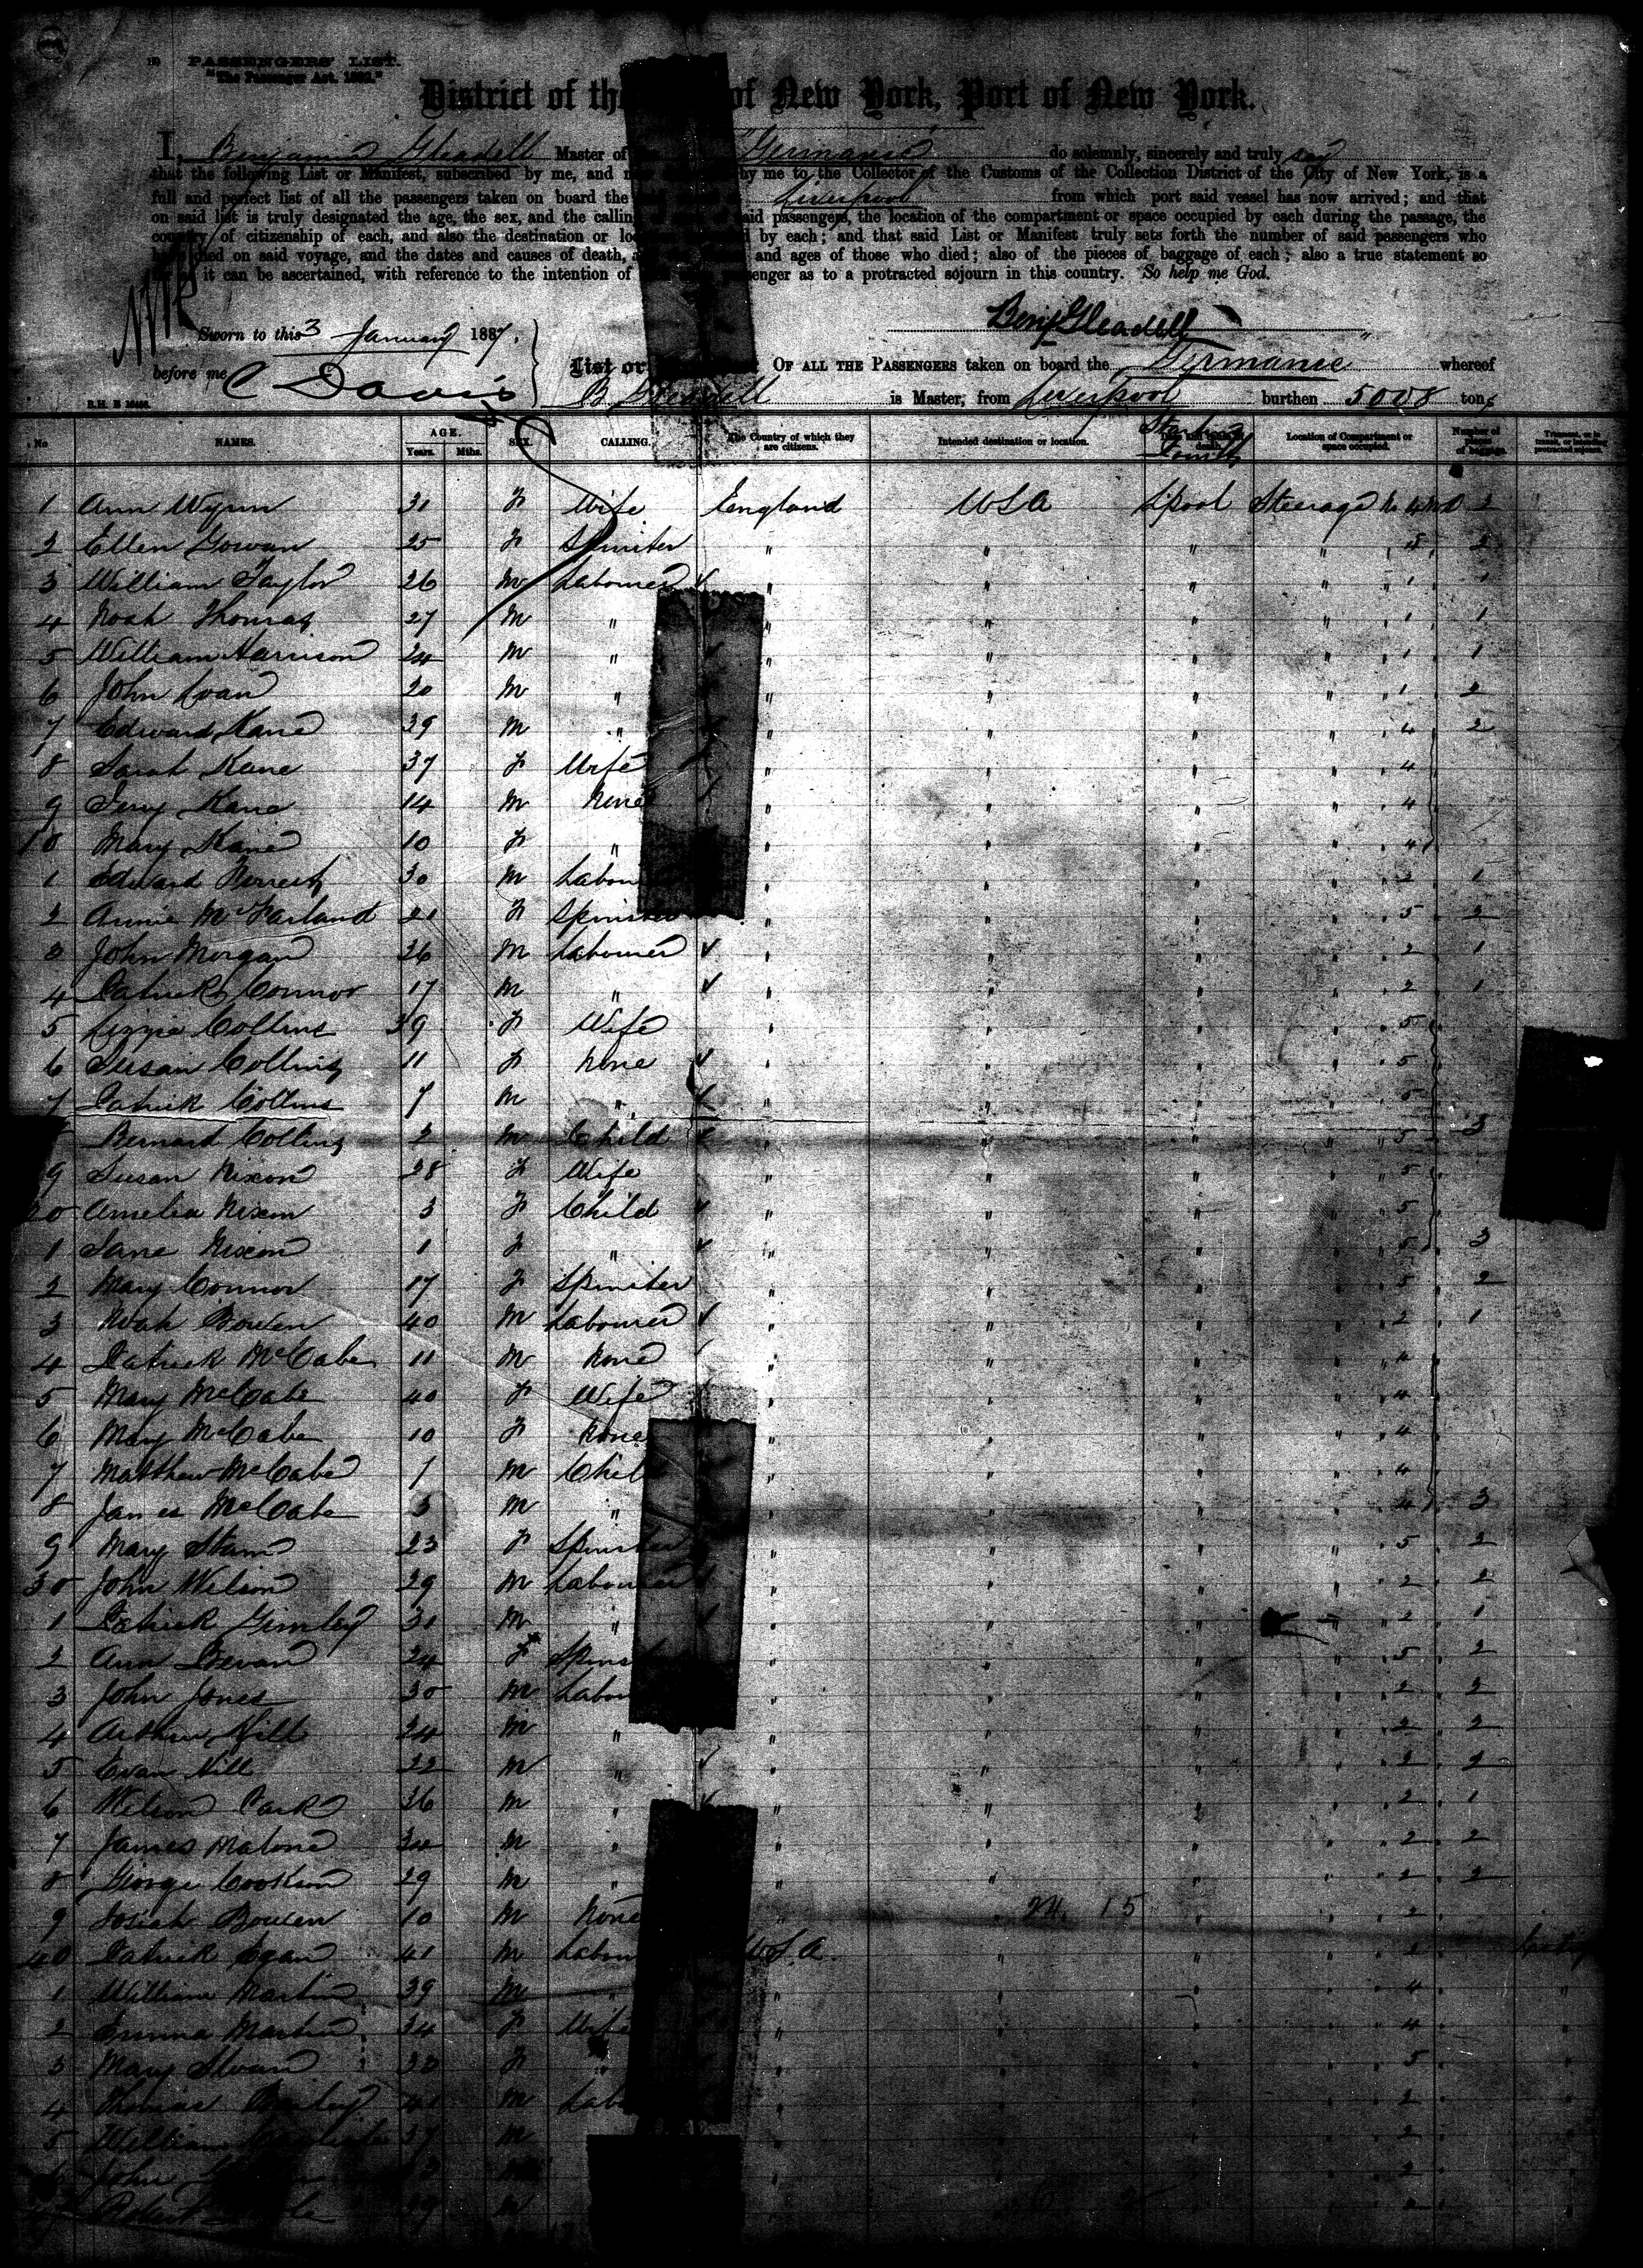 PASSENGERS' LIST.
"The Passenger Act. 1882."
District of the of New York, Port of New York.
I, Benjamin Gleadell Master of Germanic do solemnly, sincerely and truly say
that the following List or Manifest, subscribed by me, and by me to the Collector of the Customs of the Collection District of the City of New York, is a
full and perfect list of all the passengers taken on board the Liverpool from which port said vessel has now arrived; and that
on said list is truly designated the age, the sex, and the calling said passengers, the location of the compartment or space occupied by each during the passage, the
country of citizenship of each, and also the destination or by each; and that said List or Manifest truly sets forth the number of said passengers who
have died on said voyage, and the dates and causes of death, and ages of those who died; also of the pieces of baggage of each; also a true statement so
it can be ascertained, with reference to the intention of passenger as to a protracted sojourn in this country. So help me God.
Benj Gleadell
Sworn to this 3 January 1887.
before me C Davis
List or OF ALL THE PASSENGERS taken on board the Germanic whereof
B Gleadell is Master, from Liverpool burthen 5008 tons
No NAMES. AGE. Years. Mths. SEX. CALLING. The Country of which they are citizens. Intended destination or location. Location of Compartment or space occupied. Number of pieces of baggage.
1 Ann Wynn 31 F Wife England USA Lpool Steerage 2
2 Ellen Gowan 25 F Spinster " " " " 2
3 William Taylor 26 M Labourer " " " " 1 1
4 Noah Thomas 27 M " " " " " 1 1
5 William Harrison 24 M " " " " " 1 1
6 John Evan 20 M " " " " " 1 2
7 Edward Kane 39 M " " " " " 4 2
8 Sarah Kane 37 F Wife " " " " 4
9 Jerry Kane 14 M None " " " " 4
10 Mary Kane 10 F " " " " " 4
1 Edward 30 M Labour " " " " 2 1
2 Annie McFarland 21 F Spinster " " " 5 2
3 John Morgan 26 M Labourer " " " " 2 1
4 Patrick Connor 17 M " " " " " 2 1
5 Lizzie Collins 39 F Wife " " " " 5
6 Susan Collins 11 F None " " " " 5
7 Patrick Collins 7 M " " " " " 5
Bernard Collins 2 M Child " " " " 5 3
9 Susan Nixon 28 F Wife " " " " 5
20 Amelia Nixon 3 F Child " " " " 5
1 Jane Nixon 1 F " " " " " 5 3
2 Mary Connor 17 F Spinster " " " " 5 2
3 Noah Bowen 40 M Labourer " " " " 2 1
4 Patrick McCabe 11 M None " " " " 4
5 Mary McCabe 40 F Wife " " " " 4
6 Mary McCabe 10 F None " " " " 4
7 Matthew McCabe M Child " " " " 4
8 James McCabe 3 M " " " " " 4 3
9 Mary 23 F Spinster " " " " 5 2
30 John Wilson 29 M Labourer " " " " 2 2
1 Patrick Gimley 31 M " " " " 2 1
2 Ann Bevan 24 F Spins " " " " 5 2
3 John Jones 30 M Labour " " " " 2 2
4 Arthur Hill 24 M " " " " " 2 2
5 Evan Hill 22 M " " " " " 2 2
6 Wilson Park 36 M " " " " " 2 1
7 James Malone M " " " " " 2 2
8 George Cookson 29 M " " " " " 2 2
9 Josiah Bowen 10 M None " 24 15 " " 2
40 Patrick Egan 41 M Labour U.S.A. " " " 2
1 William Martin 39 M " " " " " 4
2 Emma Martin 34 F Wife " " " " 4
3 Mary F " " " " 5
4 Thomas M Lab " " " 2
5 William 37 M 2
John 2
Robert M